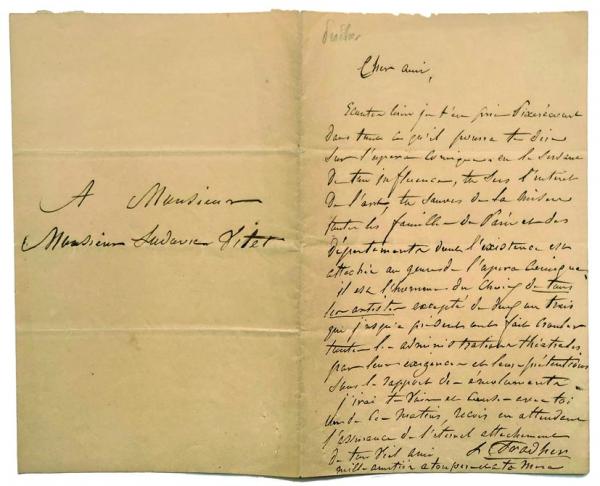 Pradher
A Monsieur
Monsieur Ludovic Vitet
Cher ami,
Ecoutes bien je t'en prie Pixerécourt
Dans tout ce qu'il pourra te dire
Sur l'opéra Comique en le servant
De ton influence, tu sers l'intérêt
De l'art, tu sauves de la misère
toutes les familles de Paris et des
départements dont l'existence est
attachée au genre de l'opera Comique,
il est l'homme du Choix de tous
les artistes excepté de deux ou trois
qui jusqu'à présent ont fait crouler
toutes les administrations théâtrales
par leur exigence et leurs prétentions
sous le rapport des émoluments
j'irai te voir et causer avec toi
un de ces matins, recois en attendant
l'assurance de l'éternel attachement
de ton vieil ami L. Pradher
mille amitiés a ton père et a ta mère